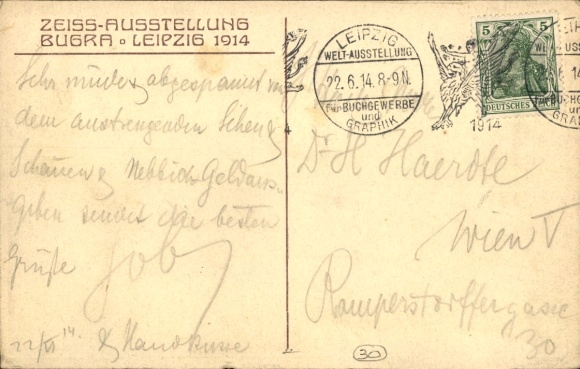 ZEISS-AUSSTELLUNG
BUGRA • LEIPZIG 1914
Sehr müde & abgespannt
dem anstrengenden Sehen &
Schauen & Nebbich-Geldaus-
geben sendet die besten
Grüße
22/VI 14. & Handküsse
LEIPZIG
WELT-AUSSTELLUNG
22.6.14.8-9N.
für BUCHGEWERBE
und
GRAPHIK
1914
5 5
DEUTSCHES
Dr H Haerdte
Wien V
Ramperstorffergasse
30
30